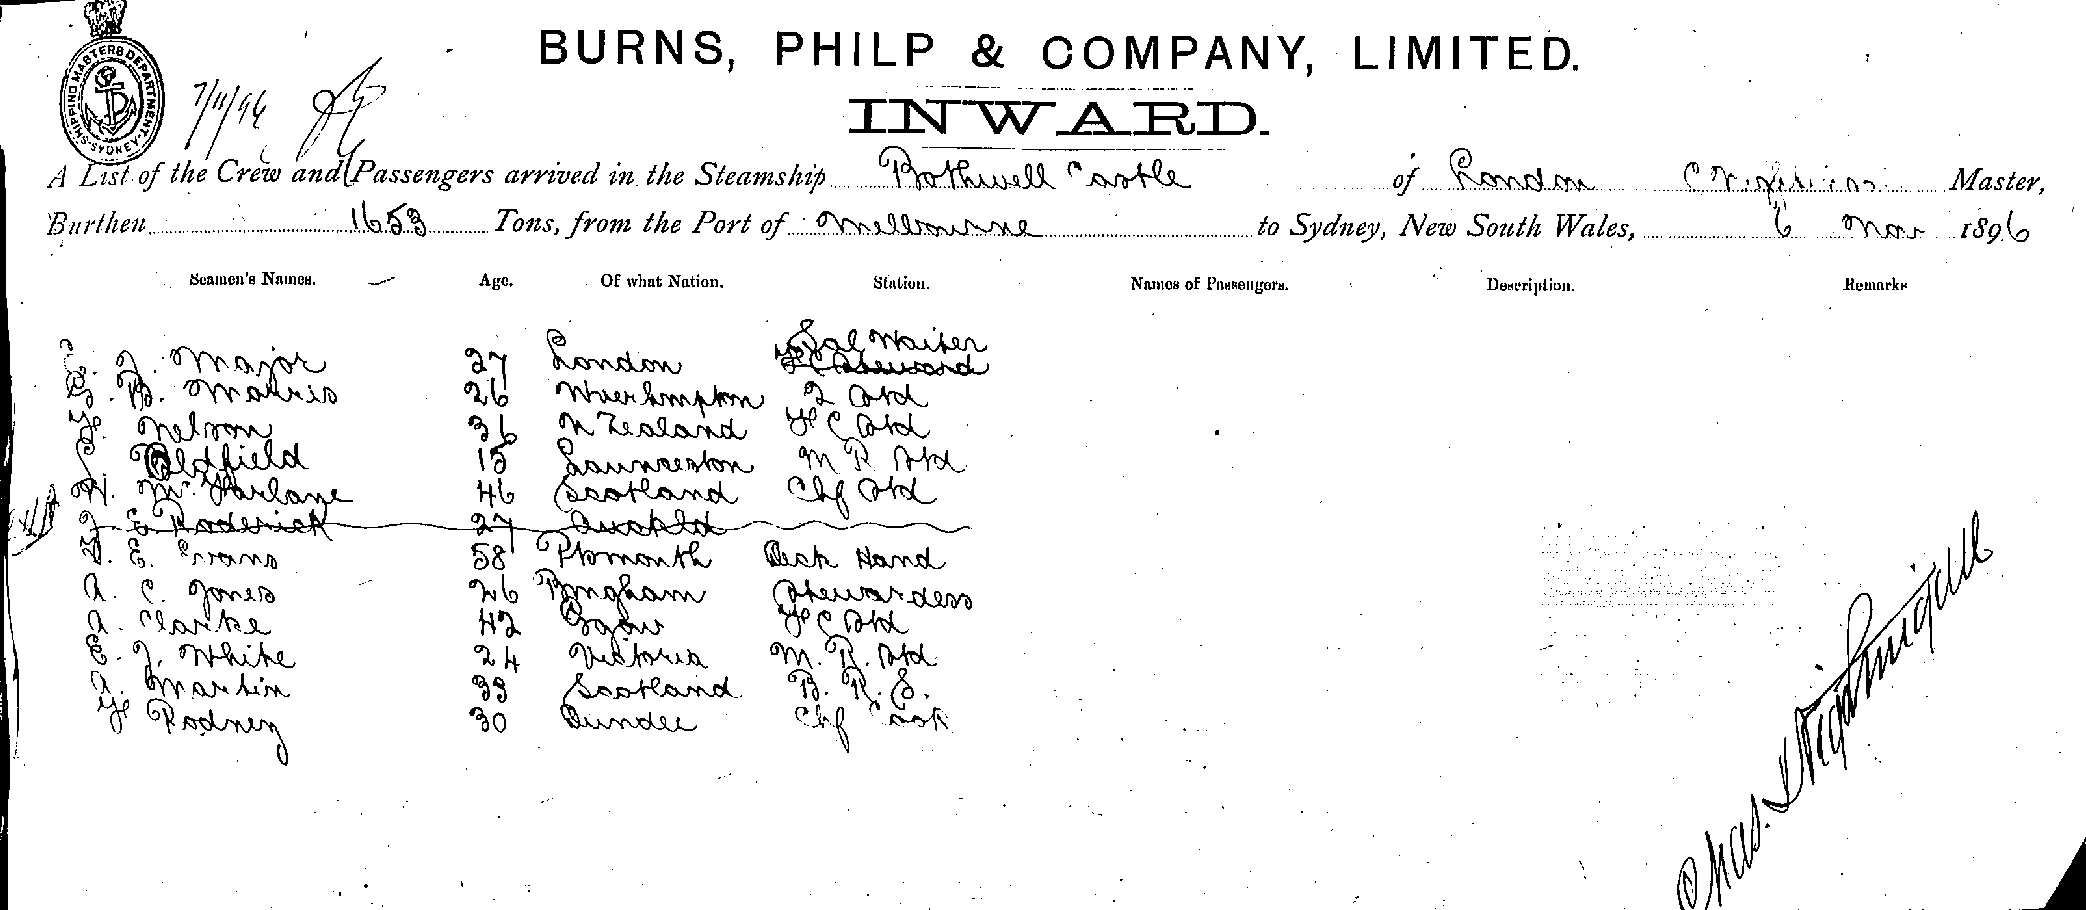 BURNS, PHILP & COMPANY, LIMITED.
INWARD.
SHIPPING MASTERS DEPARTMENT. SYDNEY
7/11/96
A List of the Crew and Passengers arrived in the Steamship Bothwell Castle of London Master,
Burthen 1653 Tons, from the Port of Melbourne to Sydney, New South Wales, 6 Nov 1896
Seamen's Names. Age. Of what Nation. Station. Names of Passengers. Description. Remarks
Sal Waiter
Major 27 London Steward
B. Morris 26 W'verhmpton 2 Std
Nelson 36 N Zealand F C Std
Oldfield 15 Launceston M R Std
W. McFarlane 46 Scotland Chf Std
Roderick 27 Auckld
E. Evans 58 Plymouth Deck Hand
A. C. Jones 26 B'ngham Stewardess
A. Clarke 42 G'gow F C Std
E. J. White 24 Victoria M. R. Std
A. Martin 33 Scotland B. R. S.
Rodney 30 Dundee Chf Cook
Chas. Nightingall